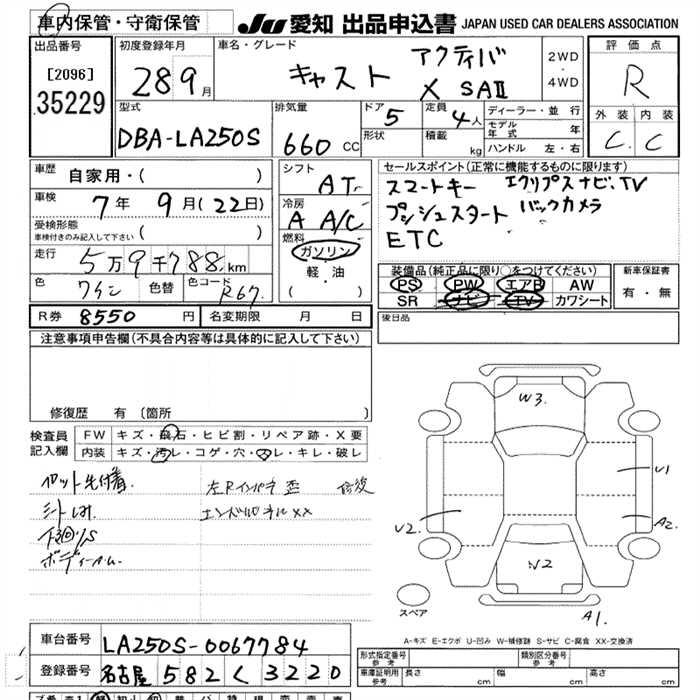 車内保管・守衛保管
JU 愛知 出品申込書 JAPAN USED CAR DEALERS ASSOCIATION
出品番号
[2096]
35229
初度登録年月
28 9月
車名・グレード
キャスト アクティバ
X SAⅡ
2WD
・
4WD
評価点
R
外装 内装
C C
型式
DBA-LA250S
排気量
660 CC
ドア 5
形状
定員 4人
積載 kg
ディーラー・並行
モデル年式 年
ハンドル 左・右
車歴 自家用・( )
車検 7年 9月(22日)
受検形態
車検付きのみ記入して下さい ( )
走行 5万9千788km
色 ワイン 色替 色コード R67
シフト
AT
冷房
A A/C
燃料
ガソリン
軽・油
( )
セールスポイント(正常に機能するものに限ります)
スマートキー エクリプスナビ、TV
プッシュスタート バックカメラ
ETC
装備品(純正品に限り○をつけてください)
PS PW エアB AW
SR ナビ TV カワシート
新車保証書
有・無
R券 8550 円 名変期限 月 日
後日品
注意事項申告欄(不具合内容等は具体的に記入して下さい)
修復歴 有 〔箇所 〕
検査員記入欄
FW キズ・飛石・ヒビ割・リペア跡・X要
内装 キズ・汚レ・コゲ・穴・スレ・キレ・破レ
左Rインパネ歪 修復
エンドパネルXX
下回りS
W3
U1
A2
U2
W2
A1.
スペア
A-キズ E-エクボ U-凹み W-補修跡 S-サビ C-腐食 XX-交換済
車台番号 LA250S-0067784
登録番号 名古屋 582 く 3220
形式指定番号
参考
類別区分番号
参考
車庫証明用
参考
長さ cm 幅 cm 高さ cm